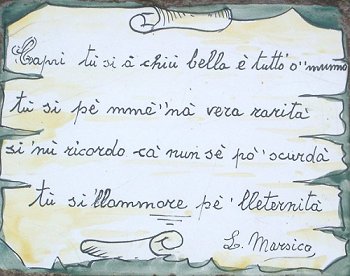 Capri tù si â chiù bella è tutt'o'' mumno
tù si pè mmè'' nà vera rarità
si 'nù ricordo cà nun sè pò' scurdà
tù si'llammore pè' lleternità
L. Marsico